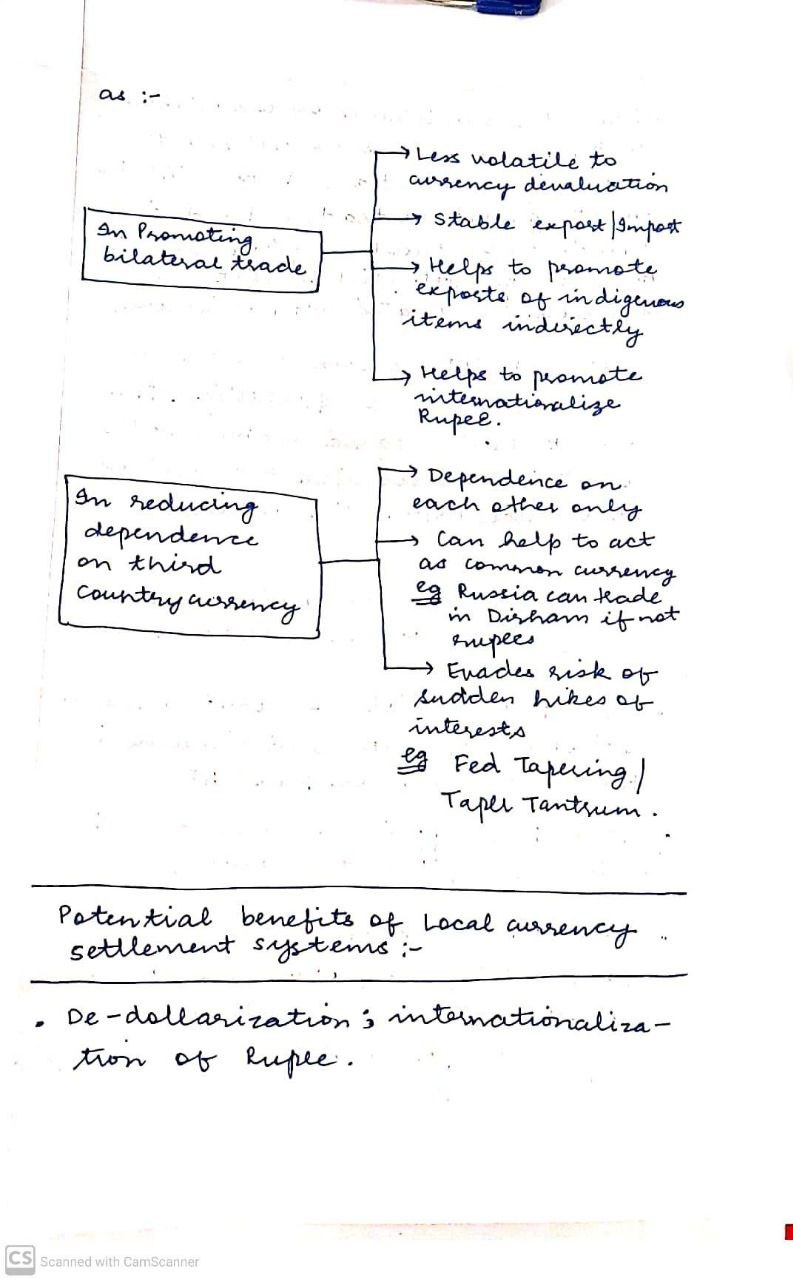 as :-
Less volatile to
currency devaluation
Stable export/Import
In Promoting
bilateral trade
Helps to promote
exports of indigenous
items indirectly
Helps to promote
internationalize
Rupee.
In reducing
dependence
on third
country currency
Dependence on
each other only
Can help to act
as common currency
eg Russia can trade
in Dirham if not
rupees
Evades risk of
sudden hikes of
interests
eg Fed Tapering/
Taper Tantrum.
Potential benefits of Local currency
settlement systems :-
• De-dollarization ; internationaliza-
tion of Rupee.
CS Scanned with CamScanner